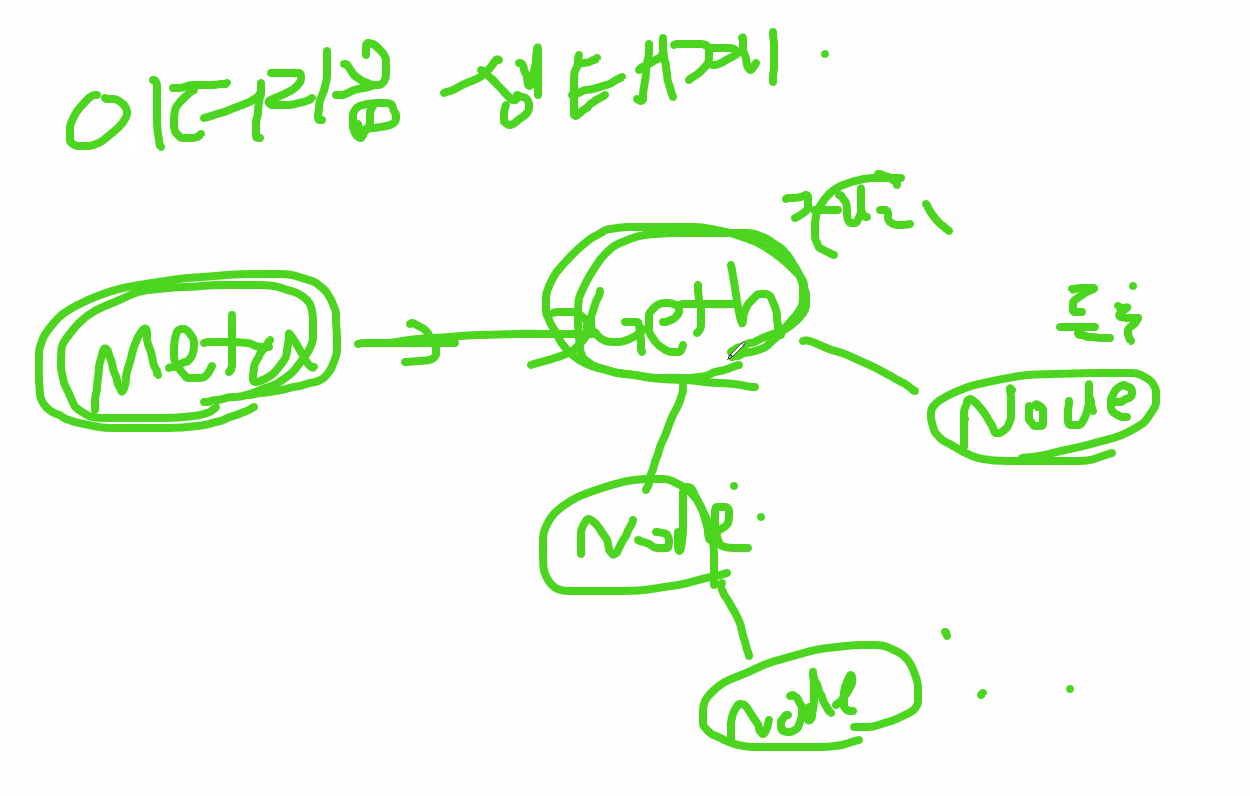 이더리움 생태계.
Meta
Geth
Node
Node
Node